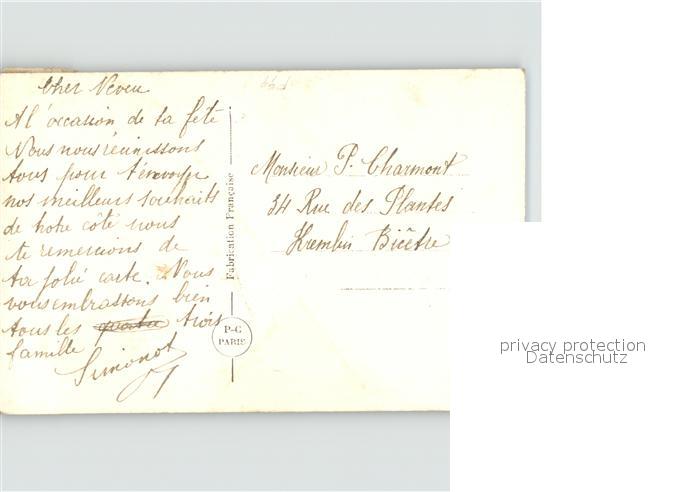 Cher Neveu
A l'occasion de ta fête
Nous nous réunissons
tous pour t'envoyer
nos meilleurs souhaits
de notre côté nous
te remercions de
ta jolie carte. Nous
vous embrassons bien
tous les trois
famille
Simonot
Fabrication Française
P-C
PARIS
Monsieur P. Charmont
34 Rue des Plantes
Kremlin Bicêtre
privacy protection
Datenschutz